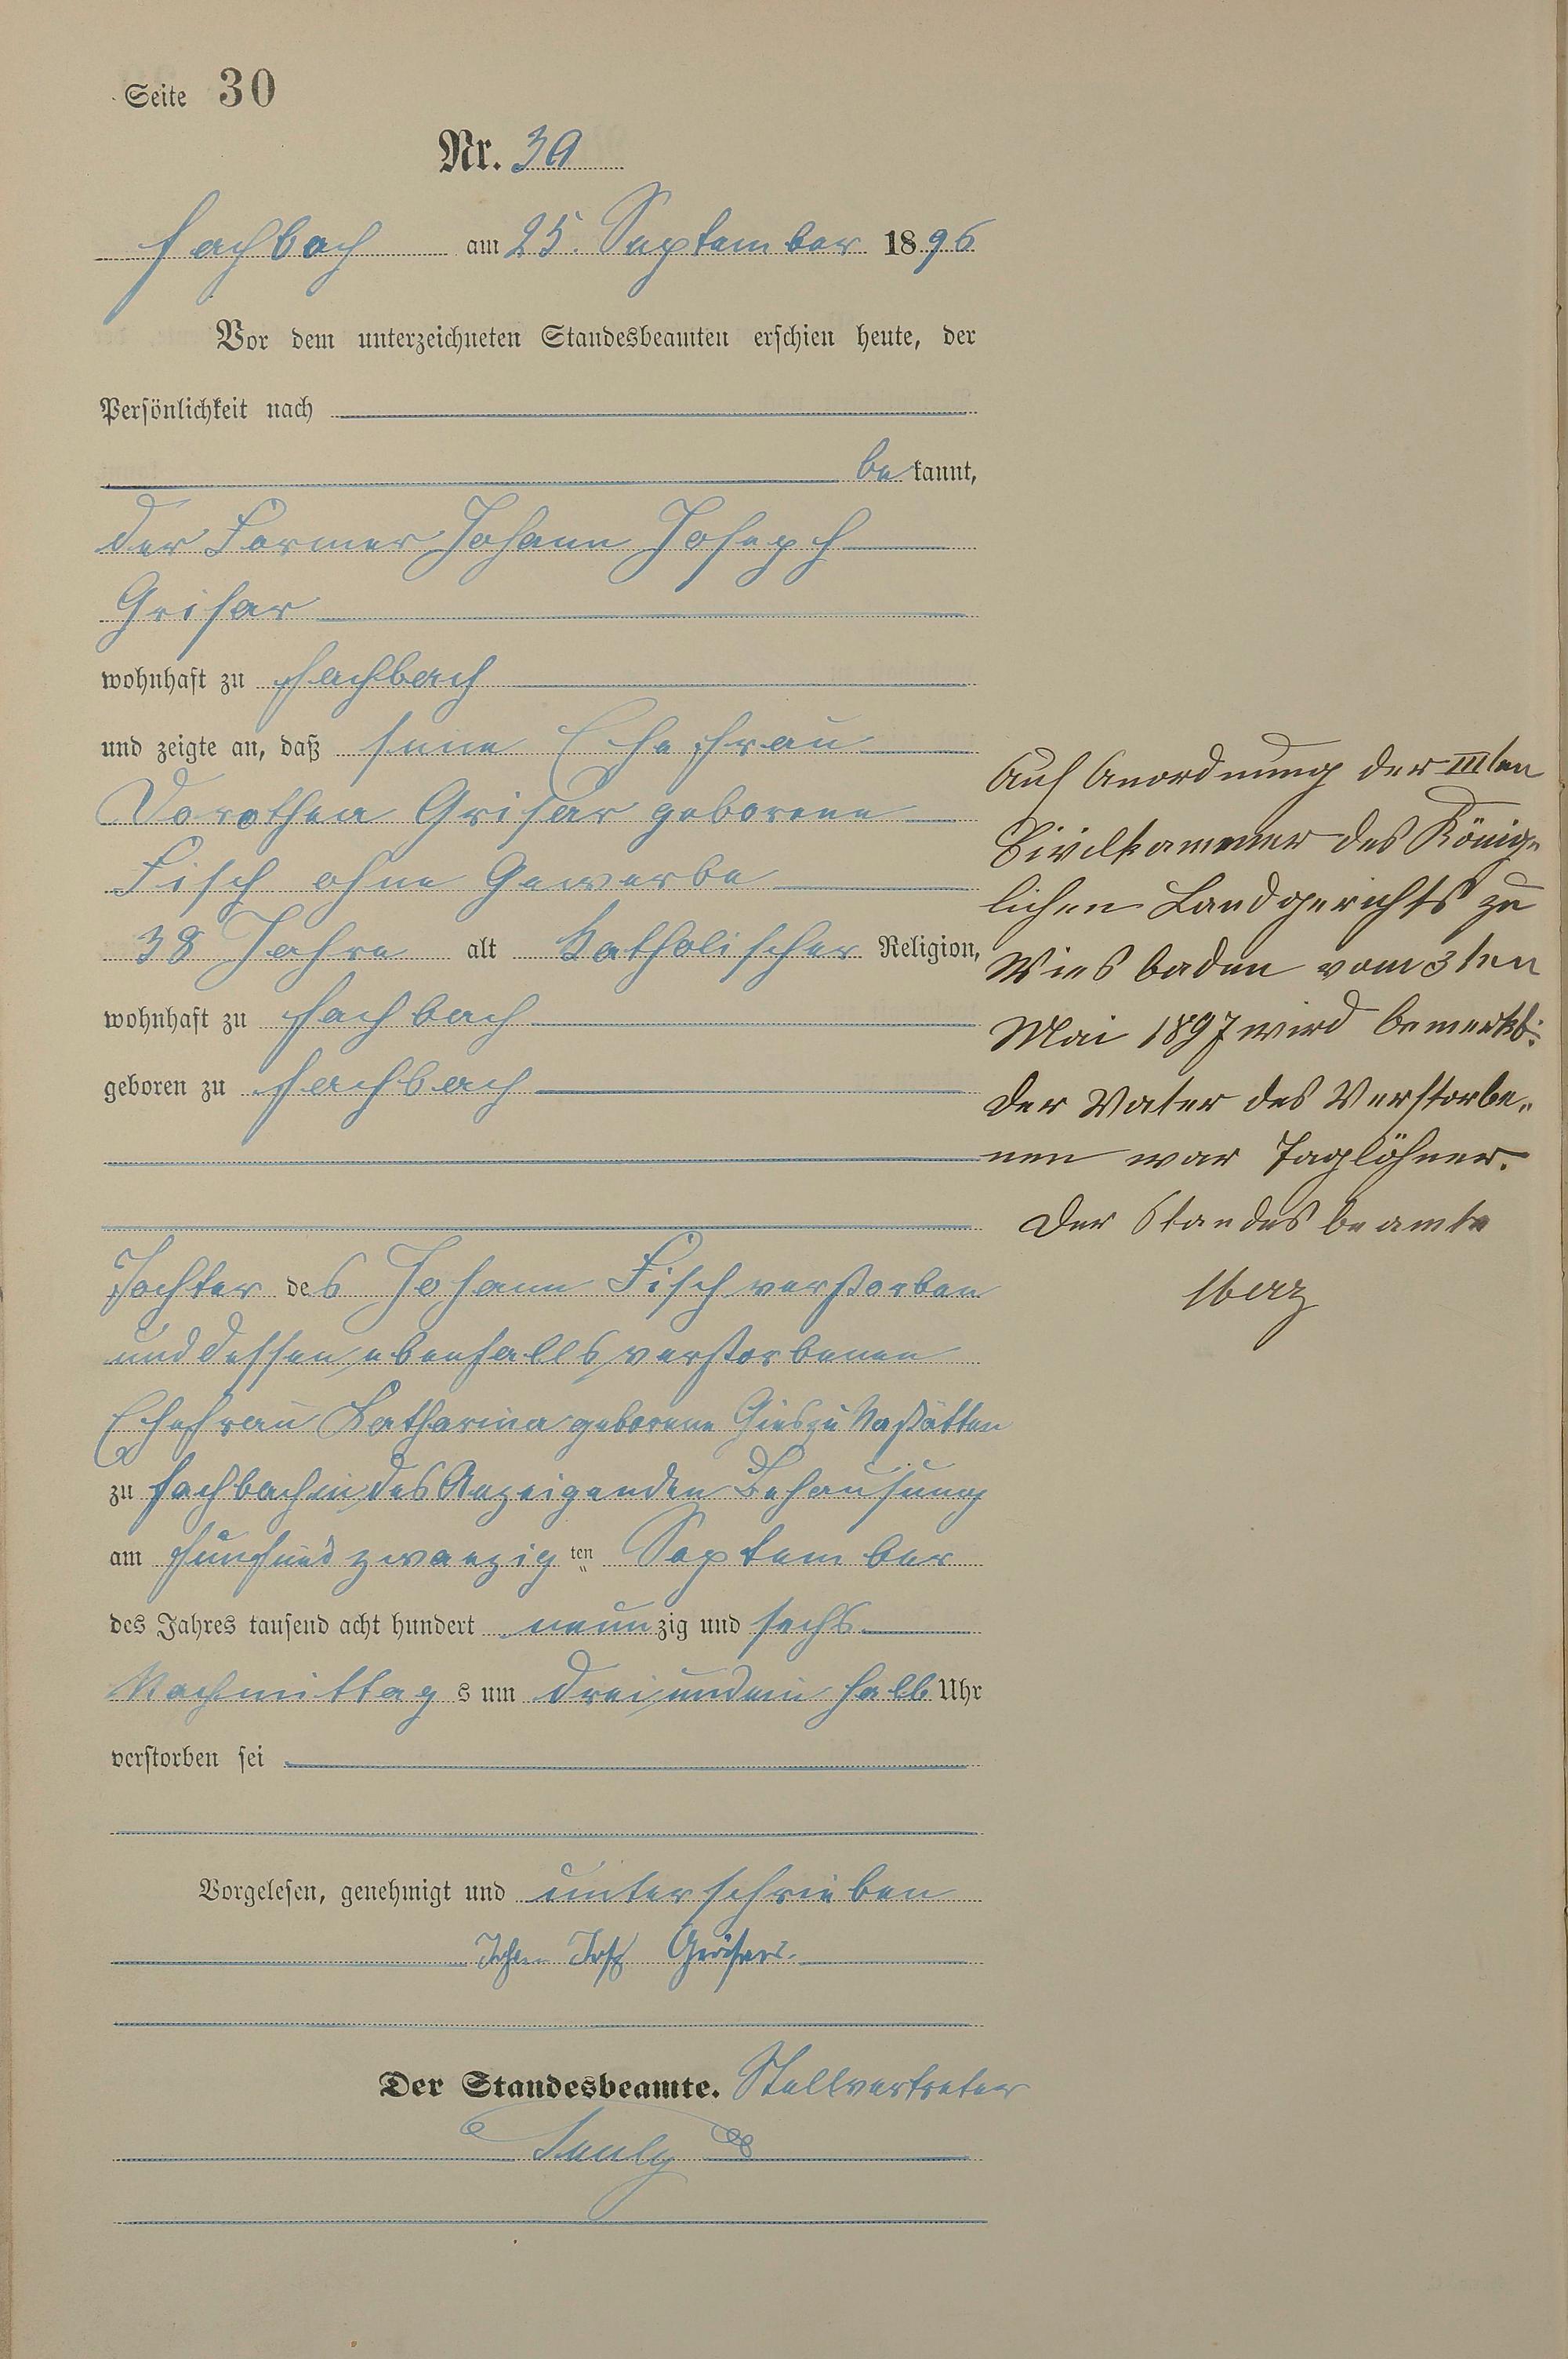 Seite 30
Nr. 30
Fachbach am 25. September 1896
Vor dem unterzeichneten Standesbeamten erschien heute, der
Persönlichkeit nach
be kannt,
der Former Johann Joseph
Grisar
wohnhaft zu Fachbach
und zeigte an, daß seine Ehefrau
Dorothea Grisar geborene
Fisch ohne Gewerbe
38 Jahre alt katholischer Religion,
wohnhaft zu Fachbach
geboren zu Fachbach
Tochter des Johann Fisch verstorben
und dessen ebenfalls verstorbenen
Ehefrau Katharina geborene Gies zu Nastätten
zu Fachbach in des Anzeigenden Behausung
am fünfundzwanzig ten September
des Jahres tausend acht hundert neunzig und sechs
Nachmittag s um drei und ein halb Uhr
verstorben sei
Vorgelesen, genehmigt und unterschrieben
Johan Josf Grisar.
Der Standesbeamte. Stellvertreter
Auf Anordnung der IIIten
Civilkammer des König-
lichen Landgerichts zu
Wiesbaden vom 3ten
Mai 1897 wird bemerkt:
Der Vater des Verstorbe-
nen war Taglöhner.
Der Standesbeamte